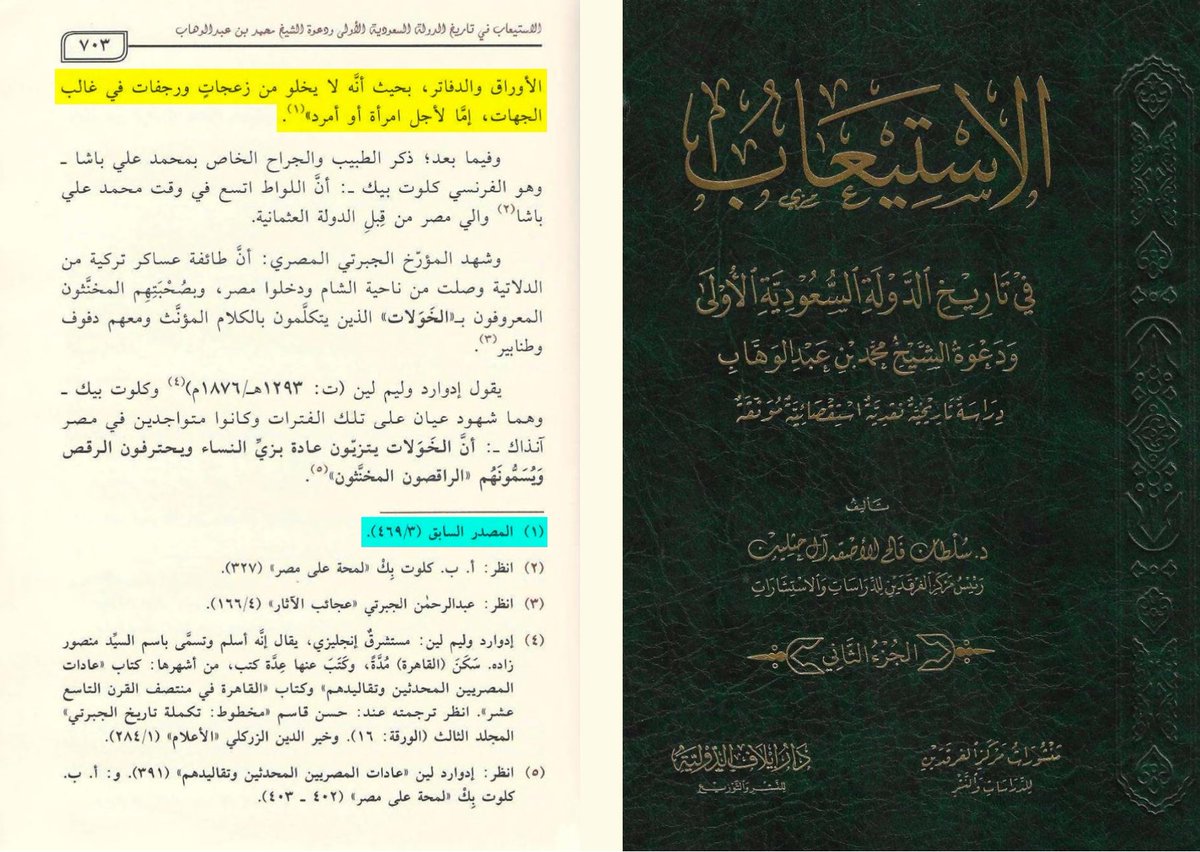 الاستيعاب في تاريخ الدولة السعودية الأولى ودعوة الشيخ محمد بن عبدالوهاب
٧٠٣
الأوراق والدفاتر، بحيث أنَّه لا يخلو من زعجاتٍ ورجفات في غالب
الجهات، إمَّا لأجل امرأة أو أمرد»(١).
وفيما بعد؛ ذكر الطبيب والجراح الخاص بمحمد علي باشا ـ
وهو الفرنسي كلوت بيك ـ: أنَّ اللواط اتسع في وقت محمد علي
باشا(٢) والي مصر من قِبلِ الدولة العثمانية.
وشهد المؤرّخ الجبرتي المصري: أنَّ طائفة عساكر تركية من
الدلاتية وصلت من ناحية الشام ودخلوا مصر، وبصُحْبَتِهِم المخنَّثون
المعروفون بـ«الخَوَلات» الذين يتكلَّمون بالكلام المؤنَّث ومعهم دفوف
وطنابير(٣).
يقول إدوارد وليم لين (ت: ١٢٩٣هـ/١٨٧٦م)(٤) وكلوت بيك ـ
وهما شهود عيان على تلك الفترات وكانوا متواجدين في مصر
آنذاك ـ: أنَّ الخَوَلات يتزيّون عادة بزيِّ النساء ويحترفون الرقص
وَيُسَمُّونَهُم «الراقصون المخنَّثون»(٥).
(١) المصدر السابق (٤٦٩/٣).
(٢) انظر: أ. ب. كلوت بِكْ «لمحة على مصر» (٣٢٧).
(٣) انظر: عبدالرحمٰن الجبرتي «عجائب الآثار» (١٦٦/٤).
(٤) إدوارد وليم لين: مستشرقٌ إنجليزي، يقال إنَّه أسلم وتسمَّى باسم السيِّد منصور
زاده. سَكَنَ (القاهرة) مُدَّةً، وكَتَبَ عنها عِدَّة كتب، من أشهرها: كتاب «عادات
المصريين المحدثين وتقاليدهم» وكتاب «القاهرة في منتصف القرن التاسع
عشر». انظر ترجمته عند: حسن قاسم «مخطوط: تكملة تاريخ الجبرتي»
المجلد الثالث (الورقة: ١٦). وخير الدين الزركلي «الأعلام» (٢٨٤/١).
(٥) انظر: إدوارد لين «عادات المصريين المحدثين وتقاليدهم» (٣٩١). و: أ. ب.
كلوت بِكْ «لمحة على مصر» (٤٠٢ ـ ٤٠٣).
الاِسْتِيعَابُ
فِي تَارِيخِ الدَّوْلَةِ السُّعُودِيَّةِ الأُولَى
وَدَعْوَةِ الشَّيْخِ مُحَمَّدِ بْنِ عَبْدِ الوَهَّابِ
دِرَاسَةٌ تَارِيخِيَّةٌ نَقْدِيَّةٌ اسْتِقْصَائِيَّةٌ مُوَثَّقَةٌ
تأليف
د. سُلطان فالح الأصقه آل حثلين
رئيس مركز الفرقدين للدراسات والاستشارات
الجزء الثاني
منشورات مركز الفرقدين
للدراسات والنشر
دار إيلاف الدولية
للنشر والتوزيع